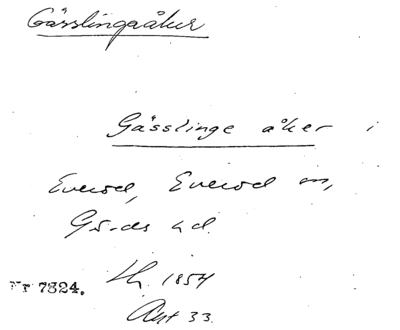 Gässlingaåker
Gässlinge åker i
Everöd, Everöd sn,
Gärds hd.
Nr 7324. Lh. 1854
Akt 33.